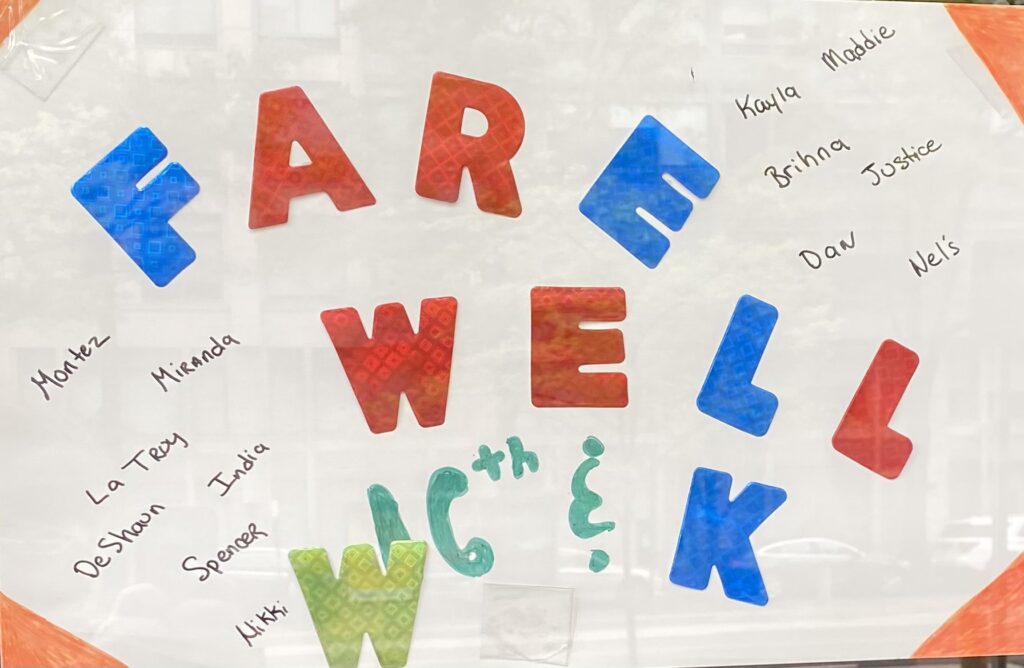 FARE
WELL
16th & K
W
Maddie
Kayla
Brihna
Justice
Dan
Nel's
Montez
Miranda
La Troy
India
DeShaun
Spencer
Nikki